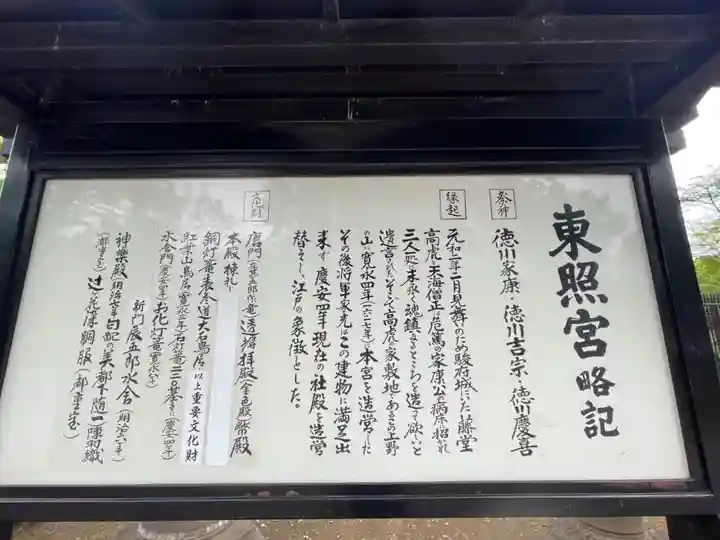 東照宮略記
祭神
徳川家康・徳川吉宗・徳川慶喜
縁起
元和二年二月見舞いのため駿府城にいた藤堂
高虎と天海僧正は危篤の家康公の病床に招かれ
三人一処に末永く魂鎮まるところを造って欲しいと
遺言された。そこで高虎の家敷地であるこの上野
の山に寛永四年(一六二七年)に本宮を造営した
その後将軍家光はこの建物に満足出
来ず慶安四年現在の社殿を造営
替えし、江戸の象徴とした。
文化財
唐門 透塀 拝殿(金色殿) 幣殿
本殿 棟札
銅灯籠 表参道大石鳥居 以上重要文化財
紅葉山鳥居 石灯篭
水舎門 お化灯篭
新門辰五郎水舎(明治六年)
神楽殿 陣羽織
辻ヶ花染胴服